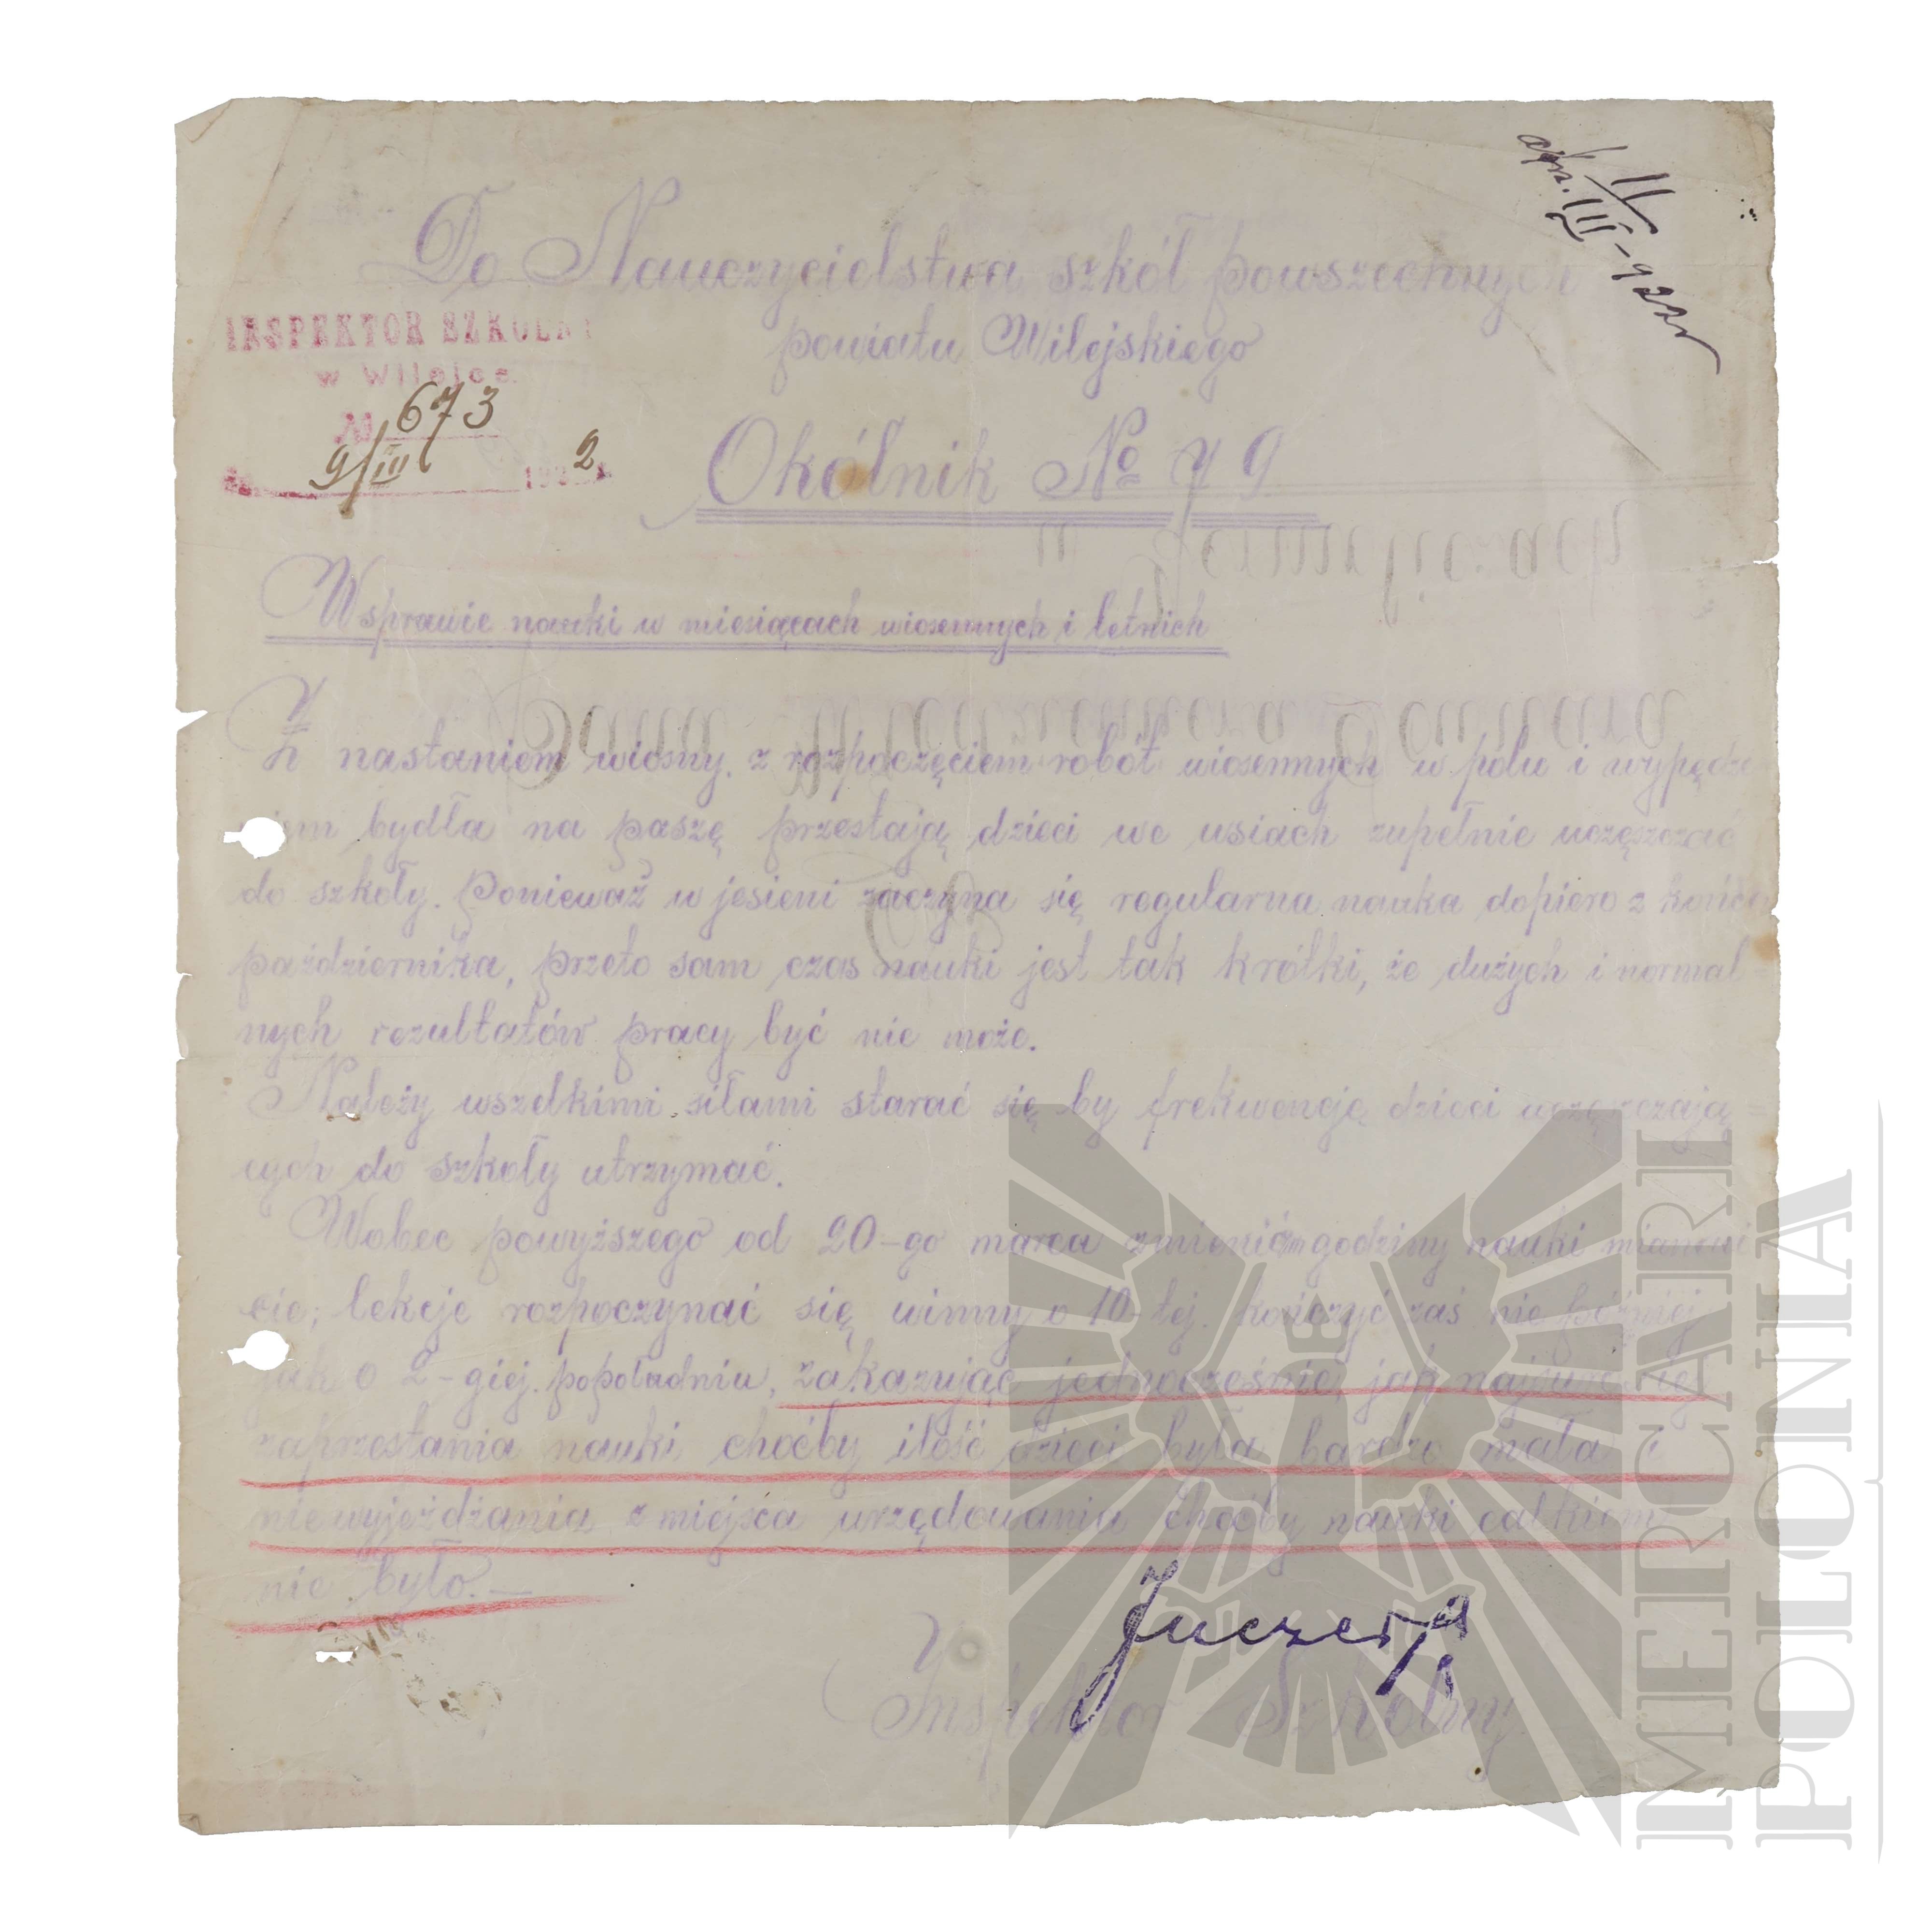 11/III-922r
Do Nauczycielstwa szkół powszechnych
powiatu Wilejskiego
INSPEKTOR SZKOLNY
w Wilejce
№ 673
9/III 1922
Okólnik № 79
W sprawie nauki w miesiącach wiosennych i letnich
Z nastaniem wiosny, z rozpoczęciem robót wiosennych w polu i wypędze
niem bydła na paszę przestają dzieci we wsiach zupełnie uczęszczać
do szkoły. Ponieważ w jesieni zaczyna się regularna nauka dopiero z końca
października, przeto sam czas nauki jest tak krótki, że dużych i normal
nych rezultatów pracy być nie może.
Należy wszelkimi siłami starać się by frekwencję dzieci uczęszczają=
cych do szkoły utrzymać.
Wobec powyższego od 20-go marca godziny nauki mianowi
cie; lekcje rozpoczynać się winny o 10-tej. kończyć zaś nie później
jak o 2-giej. popołudniu, zakazując jednocześnie, jak
zaprzestania nauki choćby ilość dzieci była bardzo mała i
niewyjeżdżania z miejsca urzędowania choćby nauki całkiem
nie było.—
Inspektor Szkolny
IMERCARI
POLONIA